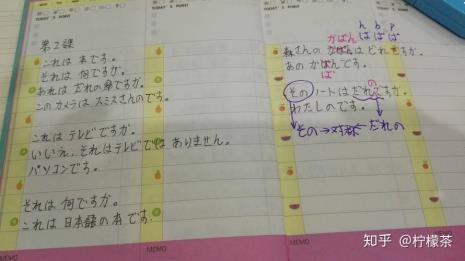 TODAY'S POINT
TODAY'S POINT
TODAY'S POINT
第2課
これは 本です。
それは 何ですか。
あれは だれの 傘ですか。
このカメラは スミスさんのです。
これは テレビですか。
いいえ、それはテレビでは ありません。
パソコンです。
それは 何ですか。
これは 日本語の 本です。
h b p
は ば ぱ
かばん
森さんの かばんは どれですか。
あの かばんです。
ば
の
その ノートは だれですか。
わたしのです。
その→対称←だれの
MEMO
MEMO
MEMO
知乎 @柠檬茶